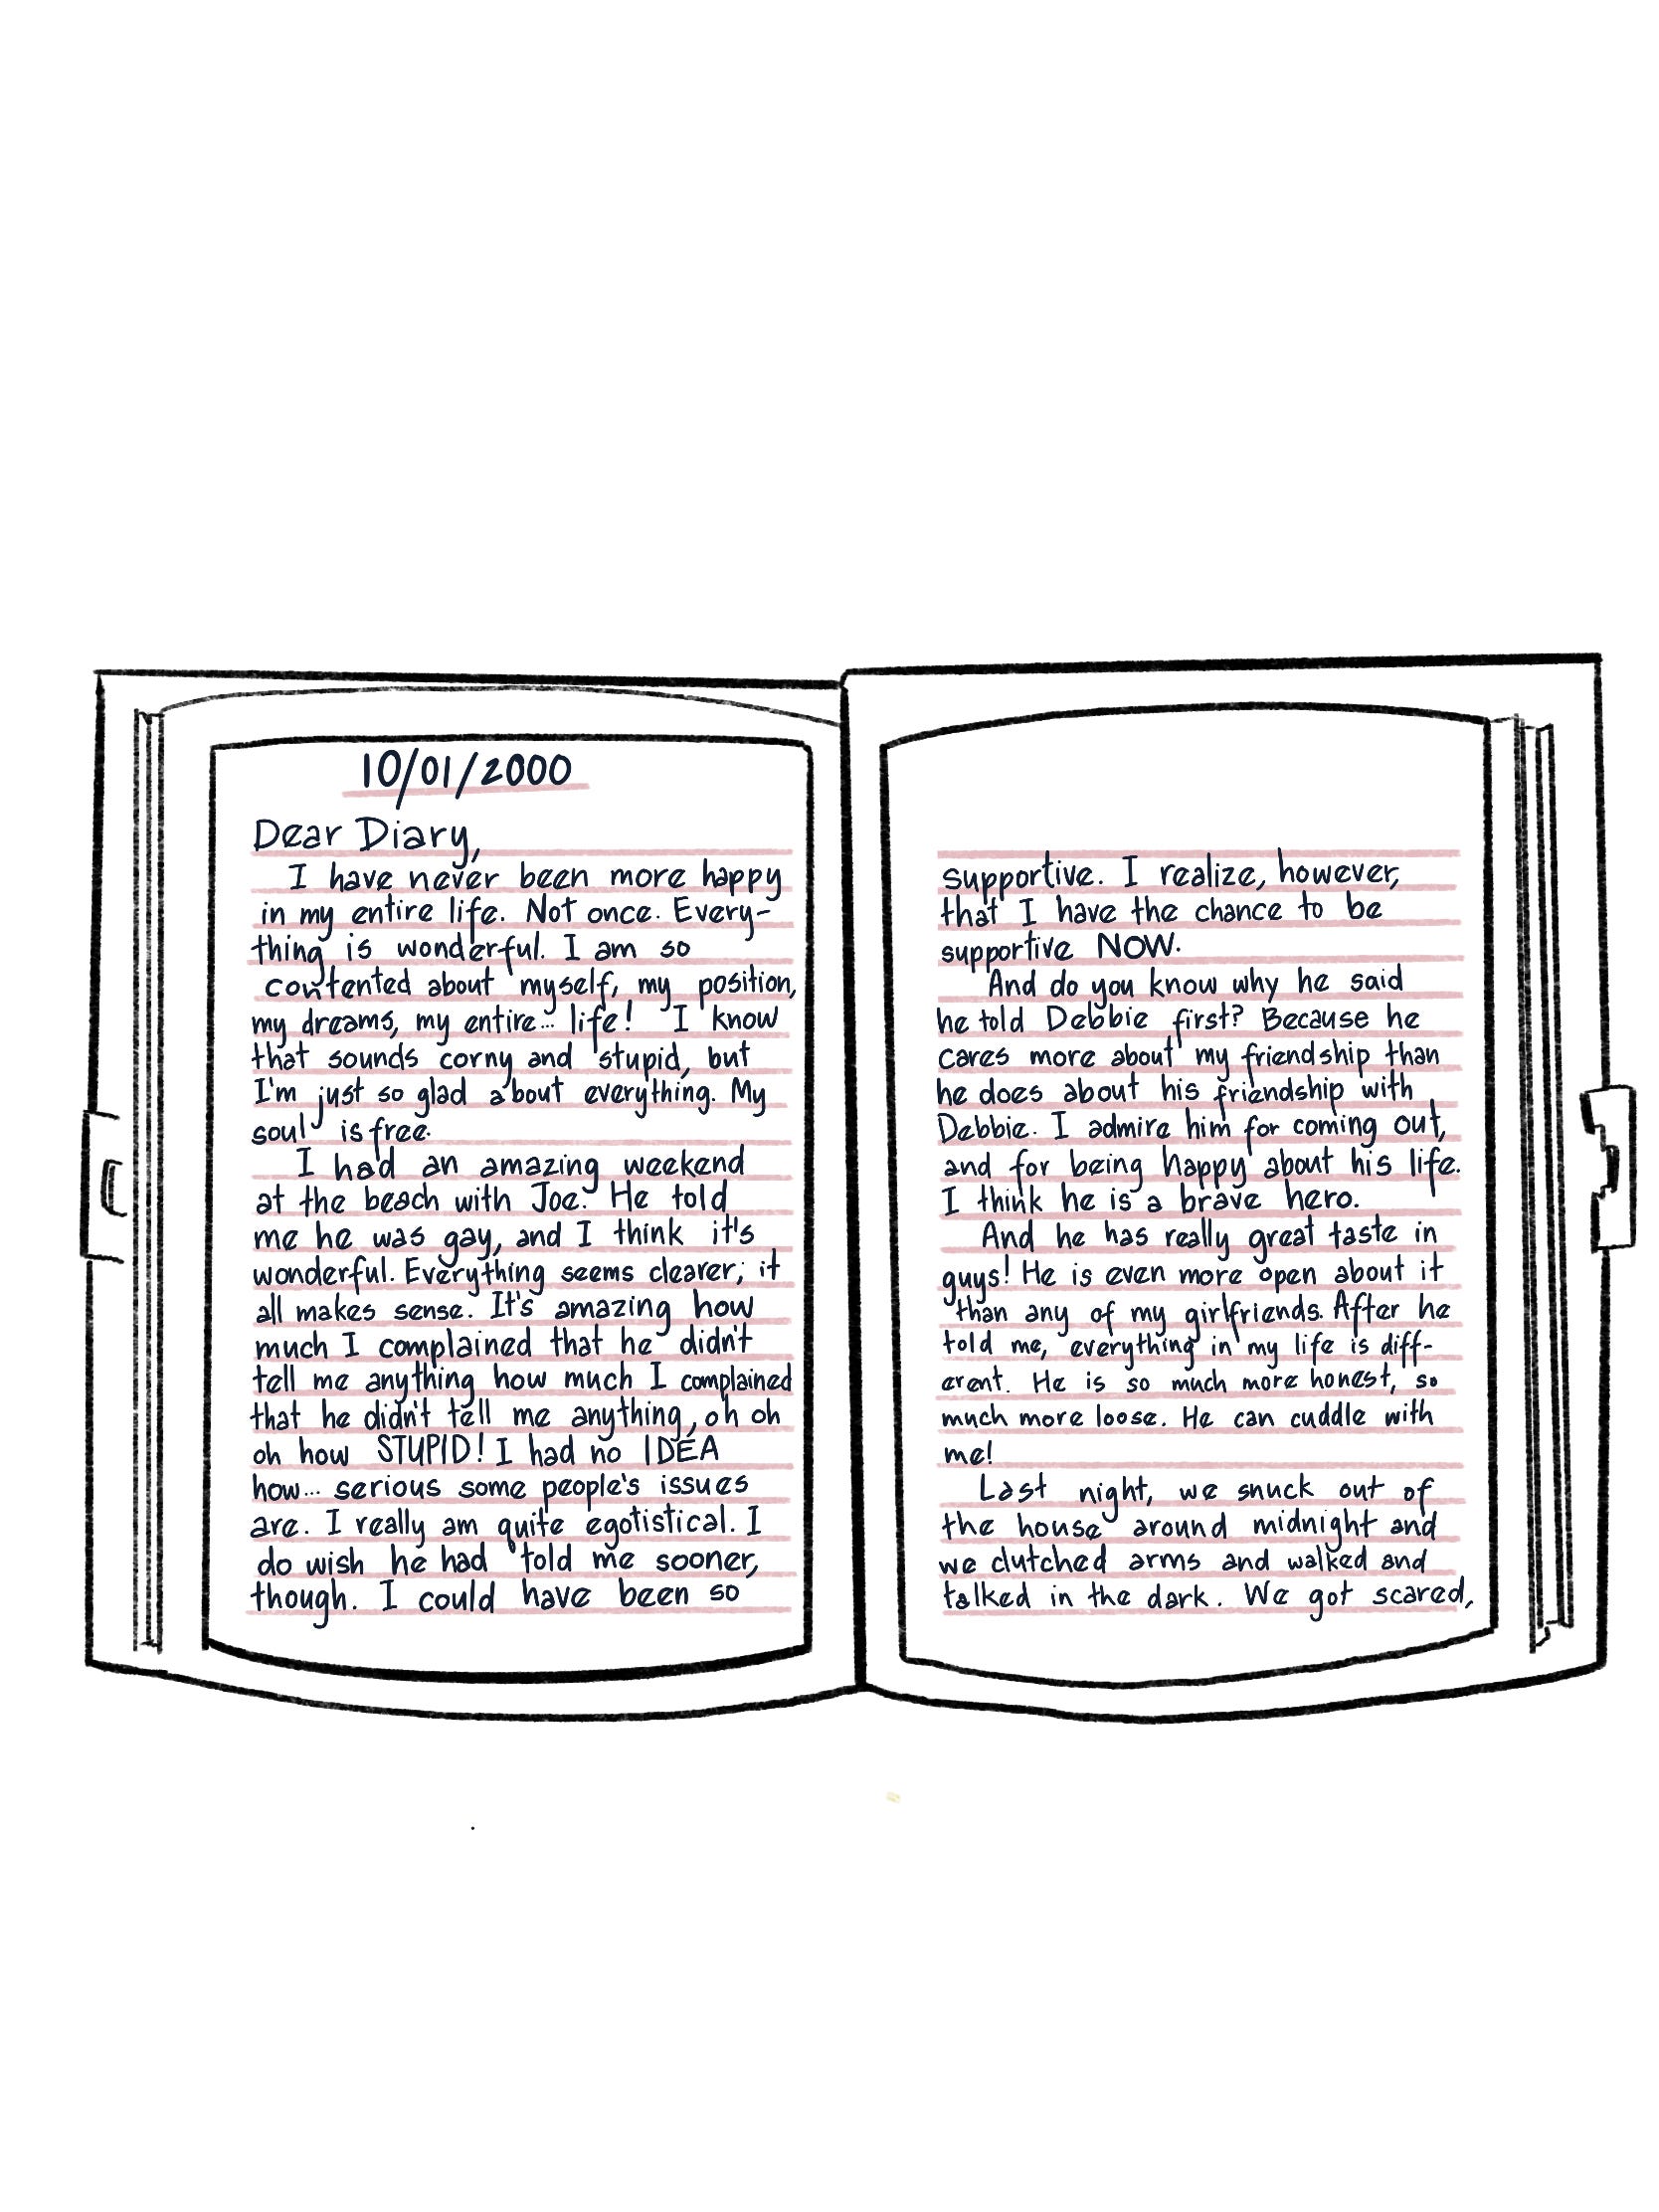 10/01/2000
Dear Diary,
I have never been more happy
in my entire life. Not once. Every-
thing is wonderful. I am so
contented about myself, my position,
my dreams, my entire... life! I know
that sounds corny and stupid, but
I'm just so glad about everything. My
soul is free.
I had an amazing weekend
at the beach with Joe. He told
me he was gay, and I think it's
wonderful. Everything seems clearer; it
all makes sense. It's amazing how
much I complained that he didn't
tell me anything how much I complained
that he didn't tell me anything, oh oh
oh how STUPID! I had no IDEA
how... serious some people's issues
are. I really am quite egotistical. I
do wish he had told me sooner,
though. I could have been so
supportive. I realize, however,
that I have the chance to be
supportive NOW.
And do you know why he said
he told Debbie first? Because he
cares more about my friendship than
he does about his friendship with
Debbie. I admire him for coming out,
and for being happy about his life.
I think he is a brave hero.
And he has really great taste in
guys! He is even more open about it
than any of my girlfriends. After he
told me, everything in my life is diff-
erent. He is so much more honest, so
much more loose. He can cuddle with
me!
Last night, we snuck out of
the house around midnight and
we clutched arms and walked and
talked in the dark. We got scared,